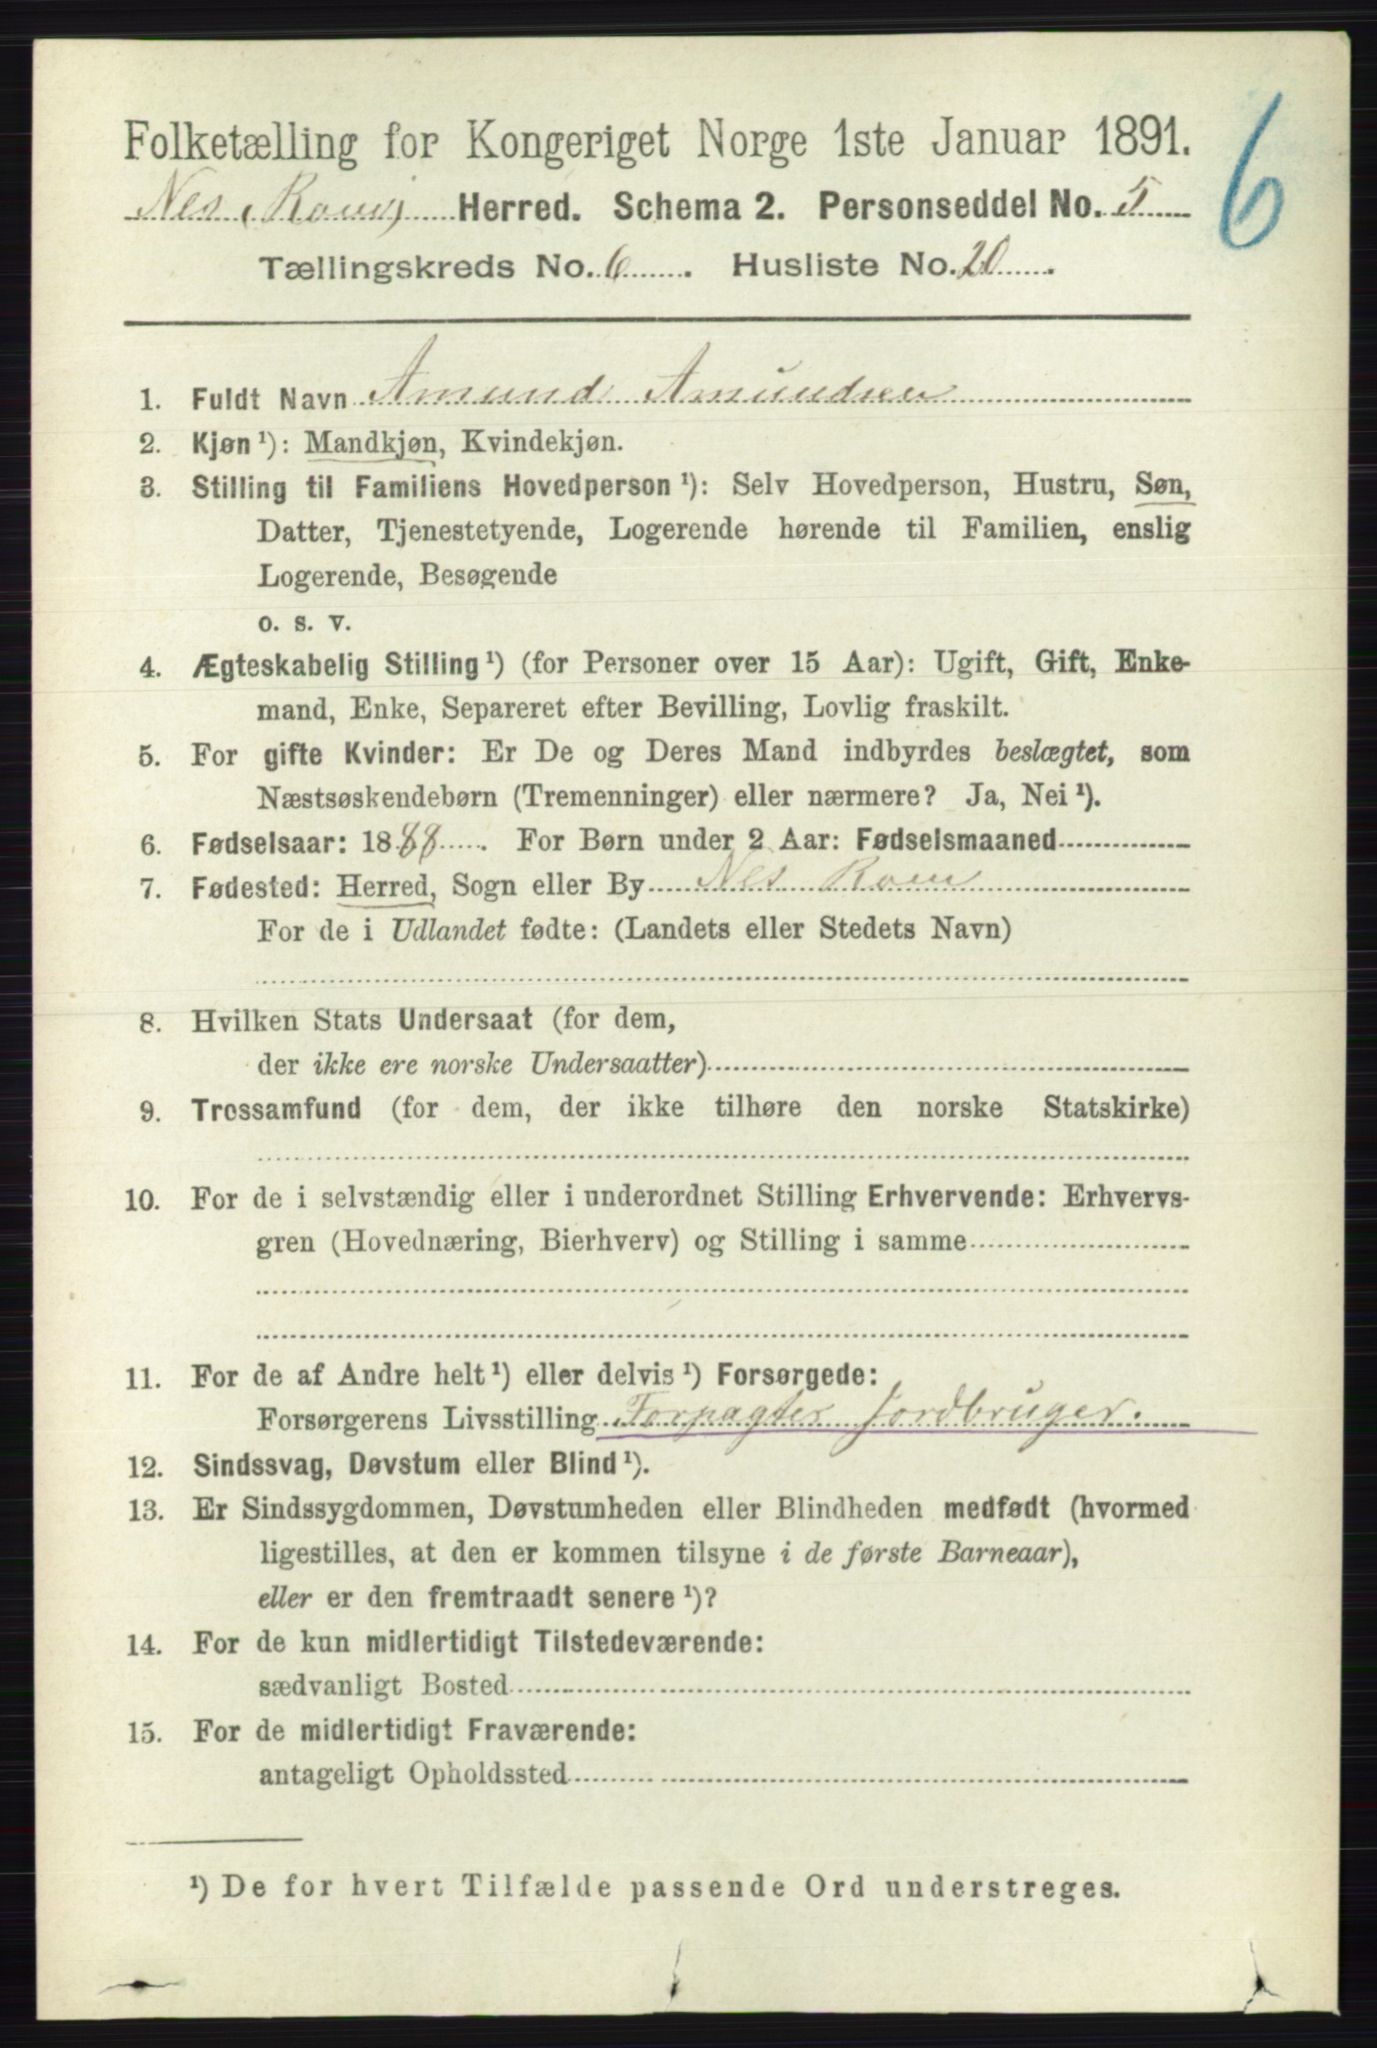 Folketælling for Kongeriget Norge 1ste Januar 1891.
6
Nes, Rom, Herred. Schema 2. Personseddel No. 5
Tællingskreds No. 6. Husliste No. 20.
1. Fuldt Navn Amund Amundsen
2. Kjøn ¹): Mandkjøn, Kvindekjøn.
3. Stilling til Familiens Hovedperson ¹): Selv Hovedperson, Hustru, Søn,
Datter, Tjenestetyende, Logerende hørende til Familien, enslig
Logerende, Besøgende
o. s. v.
4. Ægteskabelig Stilling ¹) (for Personer over 15 Aar): Ugift, Gift, Enke-
mand, Enke, Separeret efter Bevilling, Lovlig fraskilt.
5. For gifte Kvinder: Er De og Deres Mand indbyrdes beslægtet, som
Næstsøskendebørn (Tremenninger) eller nærmere? Ja, Nei ¹).
6. Fødselsaar: 1888. For Børn under 2 Aar: Fødselsmaaned
7. Fødested: Herred, Sogn eller By Nes Rom
For de i Udlandet fødte: (Landets eller Stedets Navn)
8. Hvilken Stats Undersaat (for dem,
der ikke ere norske Undersaatter)
9. Trossamfund (for dem, der ikke tilhøre den norske Statskirke)
10. For de i selvstændig eller i underordnet Stilling Erhvervende: Erhvervs-
gren (Hovednæring, Bierhverv) og Stilling i samme
11. For de af Andre helt ¹) eller delvis ¹) Forsørgede:
Forsørgerens Livsstilling Forpagter Jordbruger.
12. Sindssvag, Døvstum eller Blind ¹).
13. Er Sindssygdommen, Døvstumheden eller Blindheden medfødt (hvormed
ligestilles, at den er kommen tilsyne i de første Barneaar),
eller er den fremtraadt senere ¹)?
14. For de kun midlertidigt Tilstedeværende:
sædvanligt Bosted
15. For de midlertidigt Fraværende:
antageligt Opholdssted
¹) De for hvert Tilfælde passende Ord understreges.